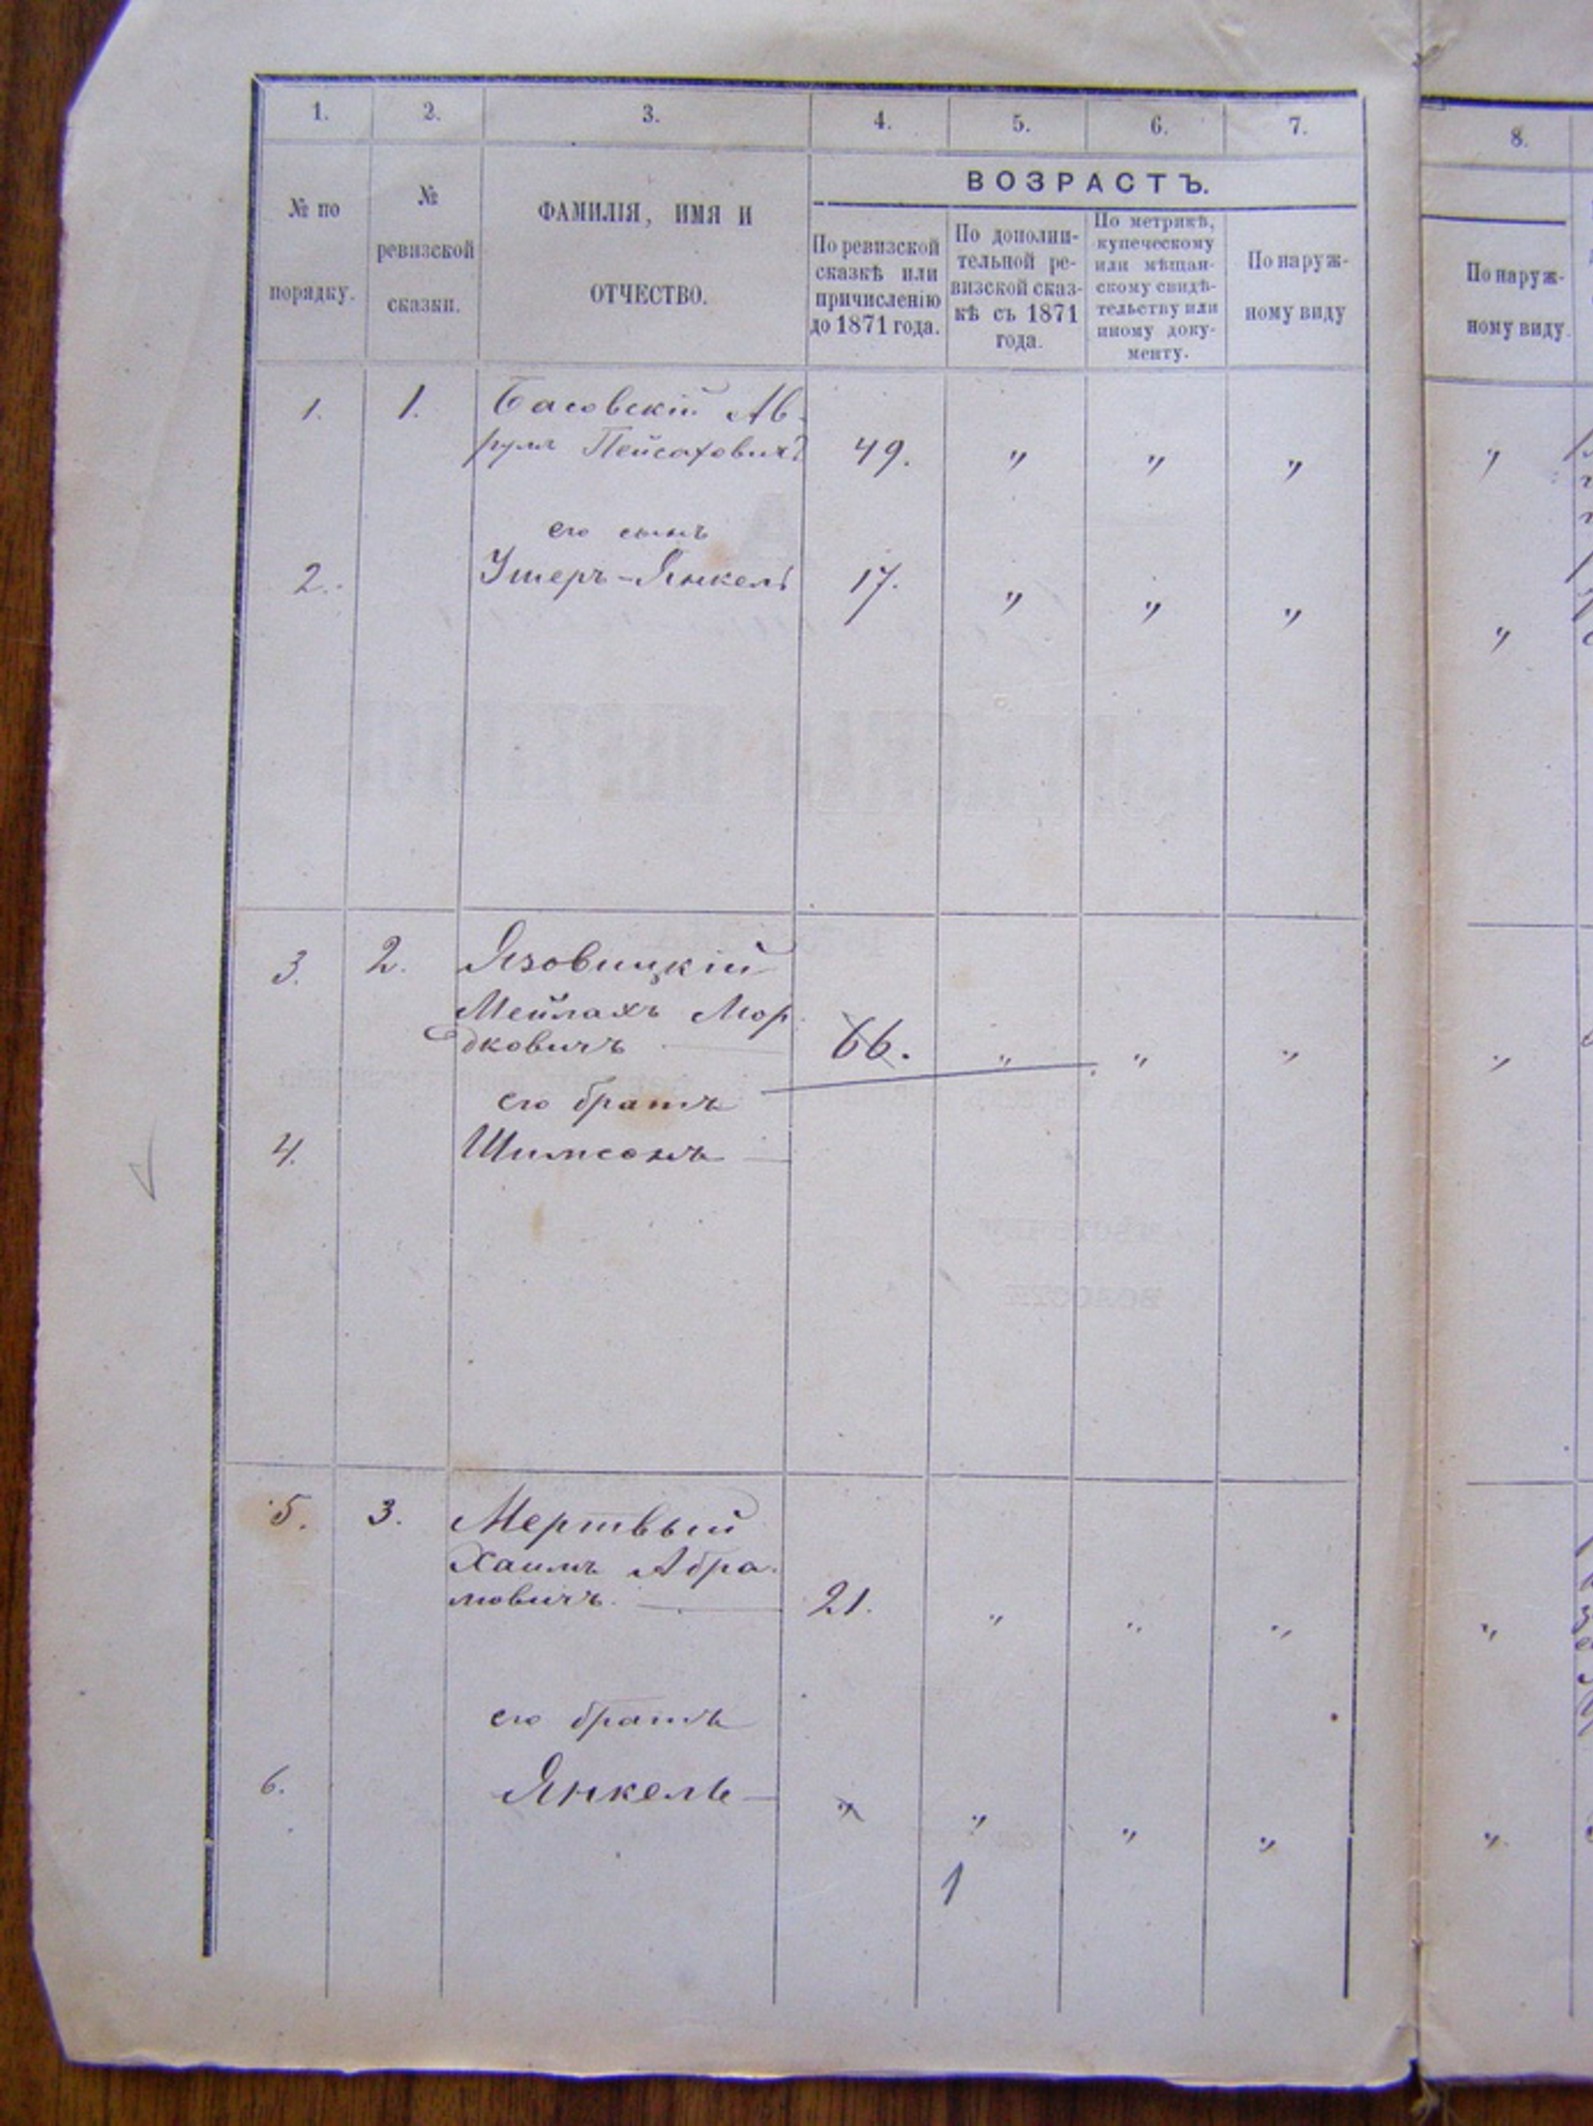 1. 2. 3. 4. 5. 6. 7. 8.
ВОЗРАСТЪ.
№ по
порядку.
№
ревизской
сказки.
ФАМИЛІЯ, ИМЯ И
ОТЧЕСТВО.
По ревизской
сказкѣ или
причисленію
до 1871 года.
По дополни-
тельной ре-
визской сказ-
кѣ съ 1871
года.
По метрикѣ,
купеческому
или мѣщан-
скому свидѣ-
тельству или
иному доку-
менту.
По наруж-
ному виду
По наруж-
ному виду.
1. 1. Басовскій Ав-
румъ Пейсаховичъ 49. " " " "
его сынъ
2. Ушеръ-Янкель 17. " " " "
3. 2. Язовицкій
Мейлахъ Мор
дковичъ 66. " " " "
его братъ
4. Шимсонъ
5. 3. Мертвый
Хаимъ Абра-
мовичъ. 21. " " " "
его братъ
6. Янкель " " " " "
1